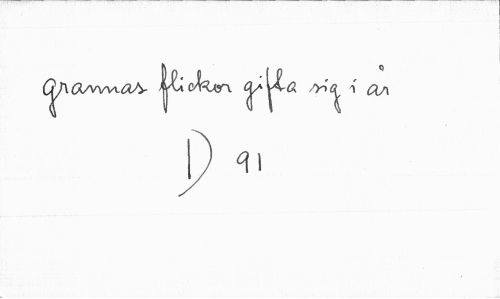 grannas flickor gifta sig i år
D 91